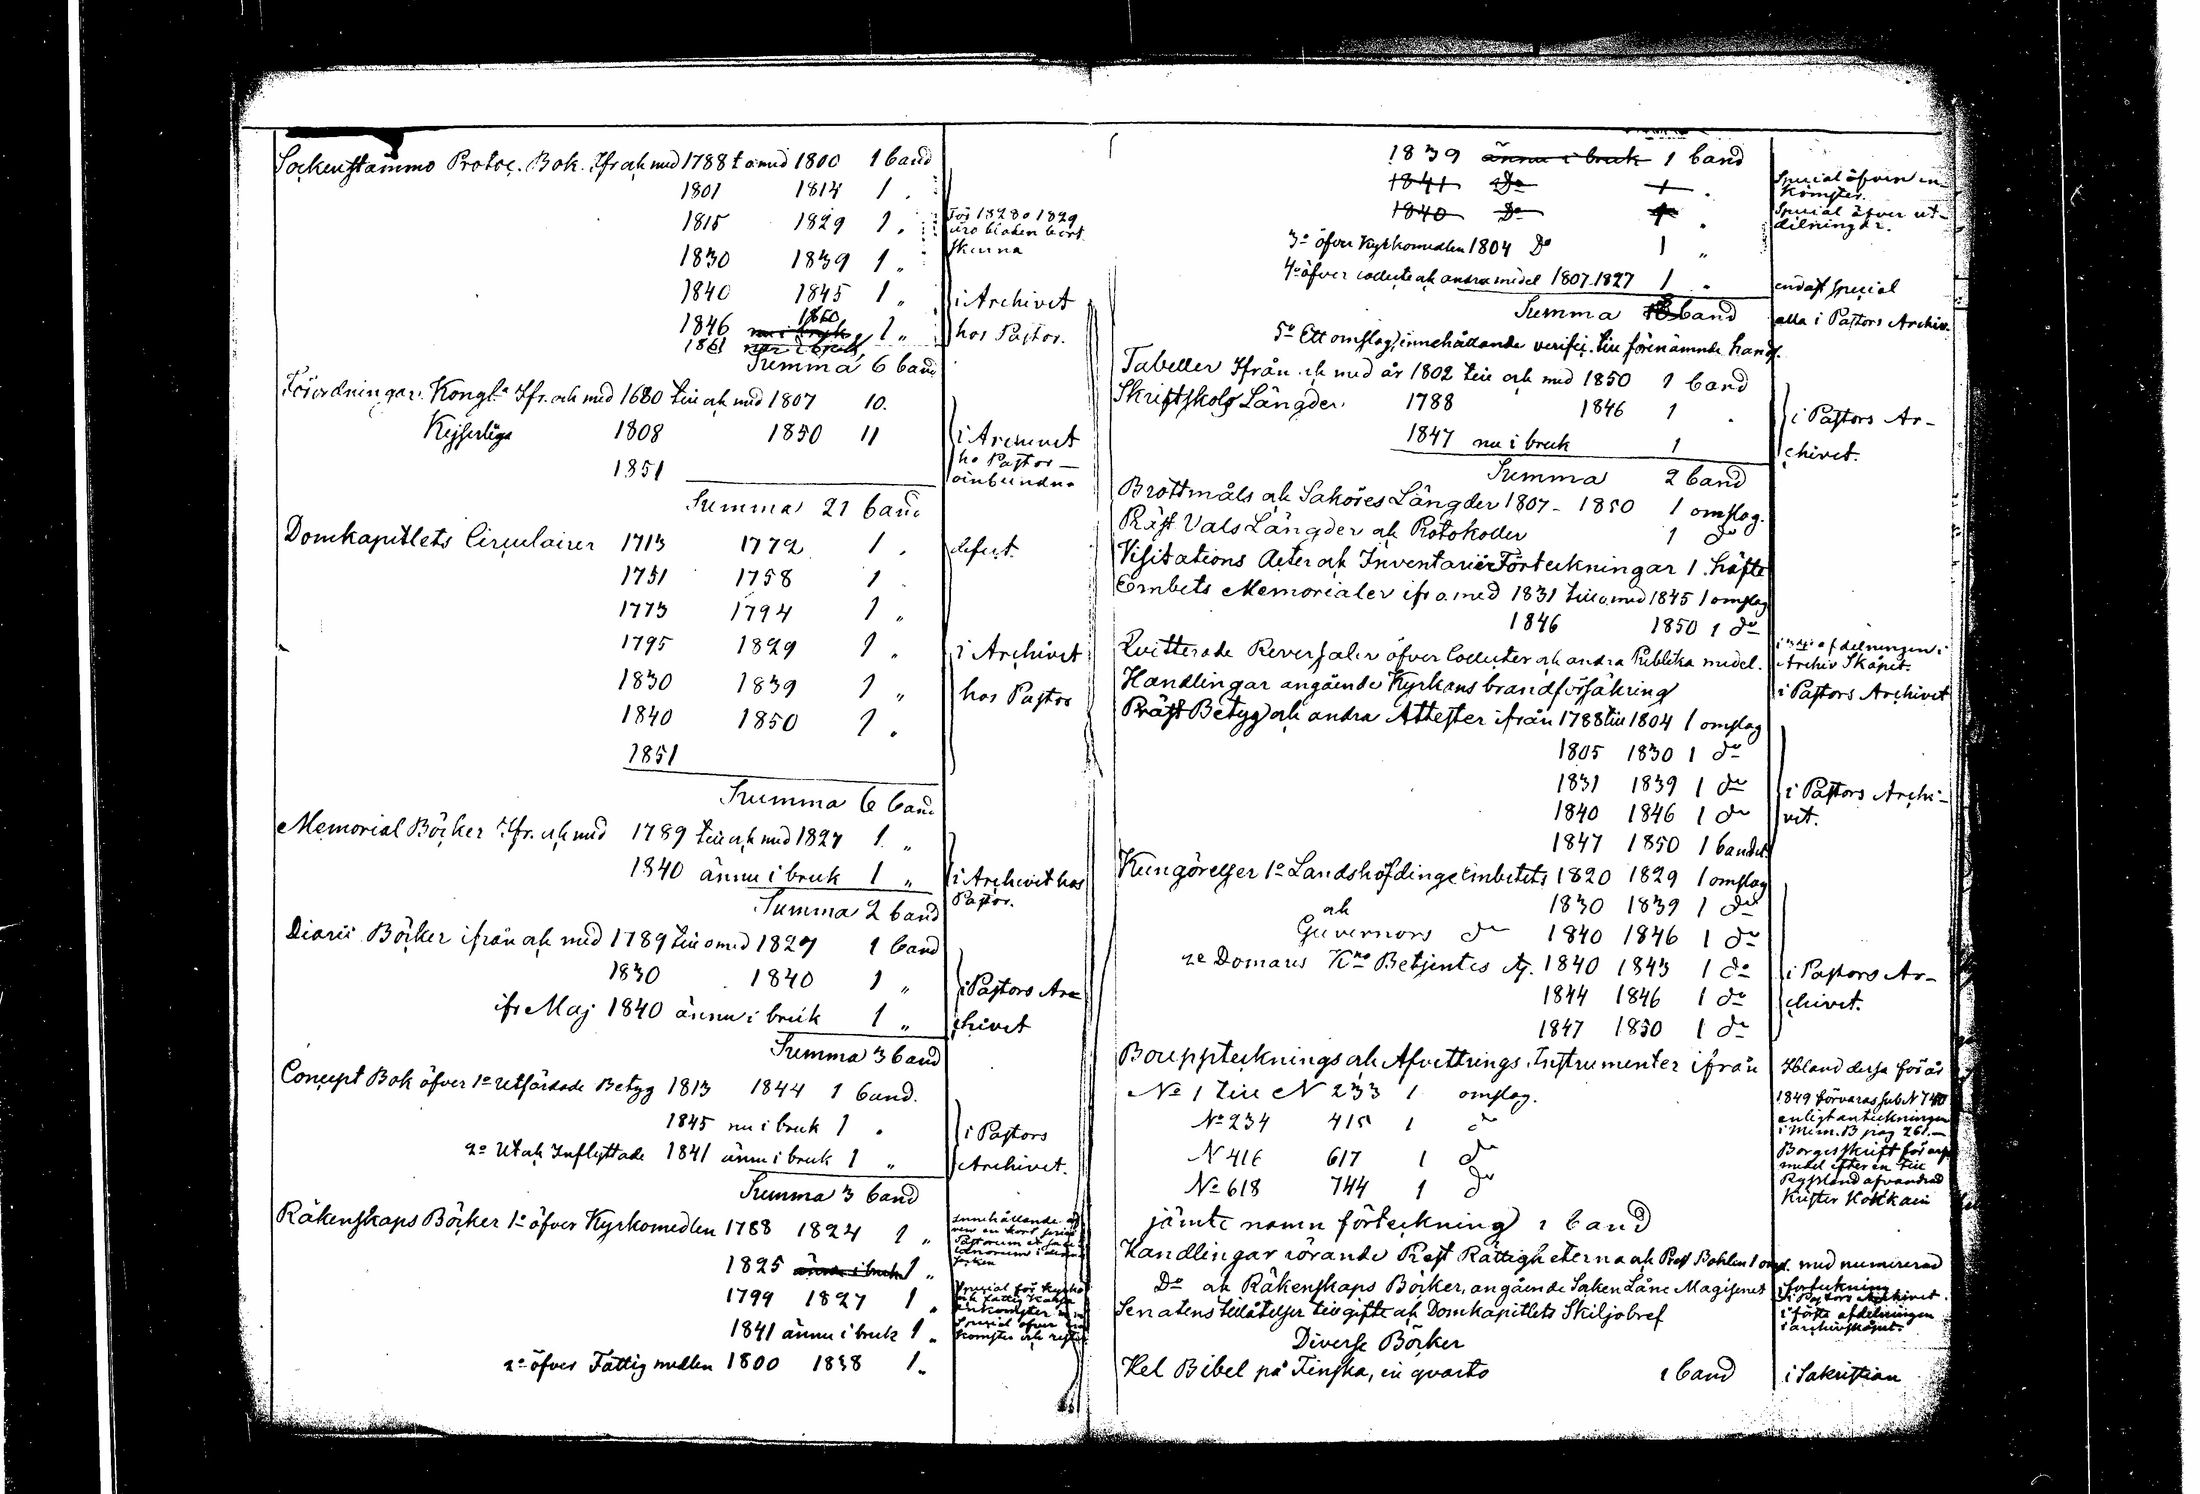 Sockenstämmo Protoc. Bok. Ifr ach med 1788 t o med 1800 1 band
1801 1814 1 "
1815 1829 1 " För 1828 o 1829
äro bladen bort
skurna
1830 1839 1 "
1840 1845 1 " i Archivet
1850
1846 nu i bruk 1 " hos Pastor.
1861 nu i bruk
Summa 6 band
Förordningar. Kongl. Ifr. ach med 1680 till ach med 1807 10.
Kejserliga 1808 1850 11 i Archivet
1851 ho Pastor —
oinbundna
Summa 21 band
Domkapitlets Circulairer 1713 1772 1 " defect.
1751 1758 1 "
1773 1794 1 "
1795 1829 1 " i Archivet
1830 1839 1 " hos Pastor
1840 1850 1 "
1851
Summa 6 band
Memorial Böcker Ifr. ach med 1789 till ach med 1827 1 "
1840 ännu i bruk 1 " i Archivet hos
Pastor.
Summa 2 band
Diarii Böcker ifrån ach med 1789 till o med 1829 1 band
1830 1840 1 " i Pastors Ar-
ifr Maj 1840 ännu i bruk 1 " chivet
Summa 3 band
Concept Bok öfver 1o utfärdade Betyg 1813 1844 1 band.
1845 nu i bruk 1 " i Pastors
2o Ut ach Inflyttade 1841 ännu i bruk 1 " Archivet.
Summa 3 band
Räkenskaps Böcker 1o öfver Kyrkomedlen 1788 1824 1 " Innehållande
1825 ännu i bruk 1 "
1799 1827 1 "
1841 ännu i bruk 1 "
2o öfver Fattigmedlen 1800 1838 1 "
1839 ännu i bruk 1 band
1841 Do 1 " Special öfver in-
komster.
1840 Do 1 " Special öfver ut-
delningar.
3o öfver Kyrkomedlen 1804 Do 1 "
4o öfver collecte ach andra medel 1807-1827 1 " endast special
Summa band alla i Pastors Archiv.
5o Ett omslag, innehållande verific. till förenämnde hand.
Tabeller Ifrån ach med år 1802 till ach med 1850 1 band
Skriftskols Längder 1788 1846 1 " i Pastors Ar-
1847 nu i bruk 1 chivet.
Summa 2 band
Brottmåls ach Saköres Längder 1807 - 1850 1 omslag.
Präst Vals Längder ach Protokoller 1 do
Visitations Acter ach Inventarier Förteckningar 1 häfte
Embets Memorialer ifr o. med 1831 till o. med 1845 1 omslag
1846 1850 1 do
Qvitterade Reversaler öfver Collecter ach andra Publika medel. afdelningen i
Archiv Skåpet.
Handlingar angående Kyrkans brandförsäkring i Pastors Archivet
Präst Betyg ach andra Attester ifrån 1788 till 1804 1 omslag
1805 1830 1 do
1831 1839 1 do i Pastors Archi-
1840 1846 1 do vet.
1847 1850 1 bandet.
Kungörelser 1o Landshöfdinge Embetets 1820 1829 1 omslag
ach 1830 1839 1 do
Guvernors do 1840 1846 1 do
2o Domares Betjentes 1840 1843 1 do i Pastors Ar-
1844 1846 1 do chivet.
1847 1850 1 do
Bouppteckningsach Afvittrings Instrumenter ifrån Ibland dessa för år
No 1 till N 233 1 omslag. 1849 förvaras sub N 740
No 234 415 1 do enligt anteckningen
i Mem. B pag 261.—
N 416 617 1 do Borgesskrift för arf
medel efter en till
No 618 744 1 do Ryssland afvandrad
Krister Kokkain
jämte namn förteckning 1 band
Handlingar rörande Prest Rättigheterna ach Prest Bohlen 1 oms. med numererad
förteckning
Do ach Räkenskaps Böcker, angående Saken Låne Magasinet i Pastors Archivet.
Senatens tillåtelser till gifte ach Domkapitlets Skiljobref afdelningen
i archivskåpet.
Diverse Böcker
Hel Bibel på Finska, in qvarto 1 band i Sakristian